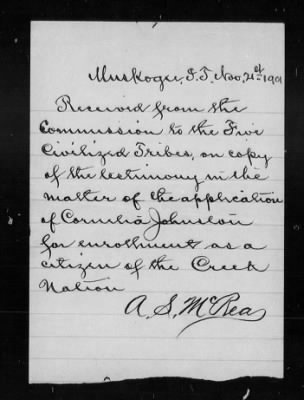 Muskogee, I.T. Nov. 21st 1901
Received from the
Commission to the Five
Civilized Tribes, on copy
of the testimony in the
matter of the application
of Cornelia Johnston
for enrollment as a
citizen of the Creek
Nation
A. S. McRea